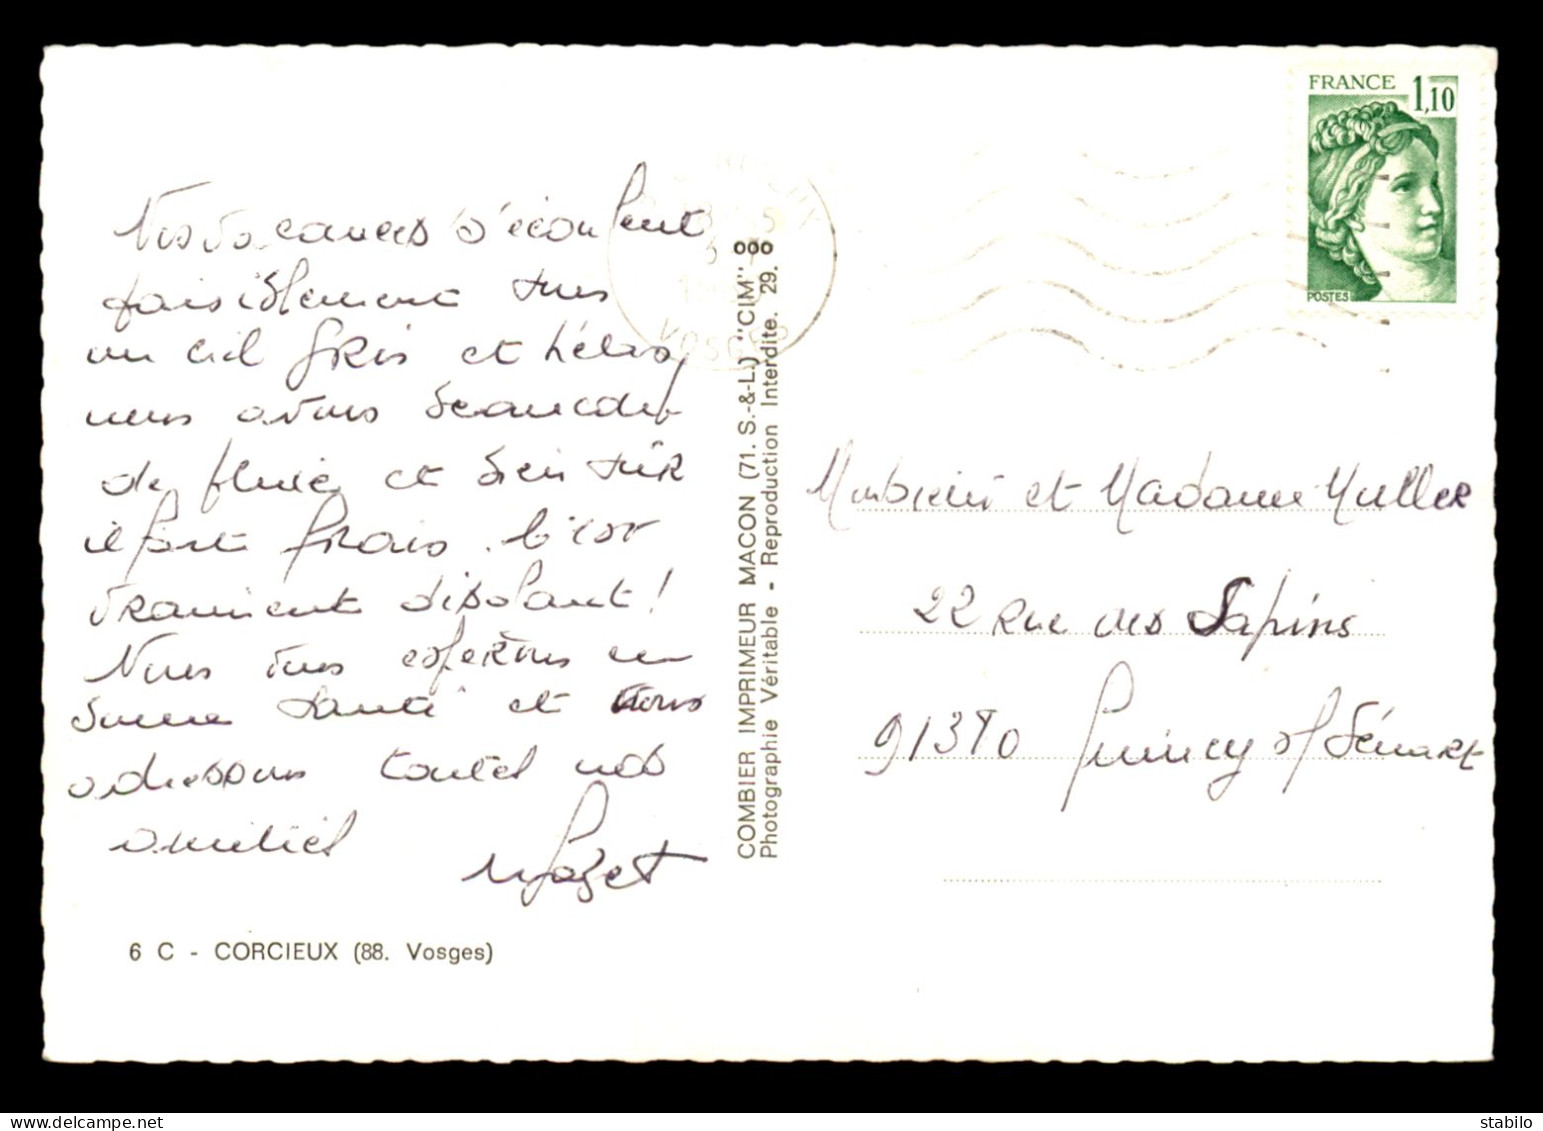 Nos vacances s'écoulent
paisiblement sous
un ciel gris et hélas,
nous avons beaucoup
de pluie et bien sûr
il fait frais. C'est
vraiment désolant !
Nous vous espérons en
bonne santé et vous
adressons toutes nos
amitiés
6 C - CORCIEUX (88. Vosges)
COMBIER IMPRIMEUR MACON (71. S.-&-L.) "CIM" ooo
Photographie Véritable - Reproduction Interdite. 29.
VOSGES
FRANCE 1,10
POSTES
Monsieur et Madame Muller
22 Rue des Sapins
91380 Quincy s/ Sénart
stabilo-stamps.delcampe.net